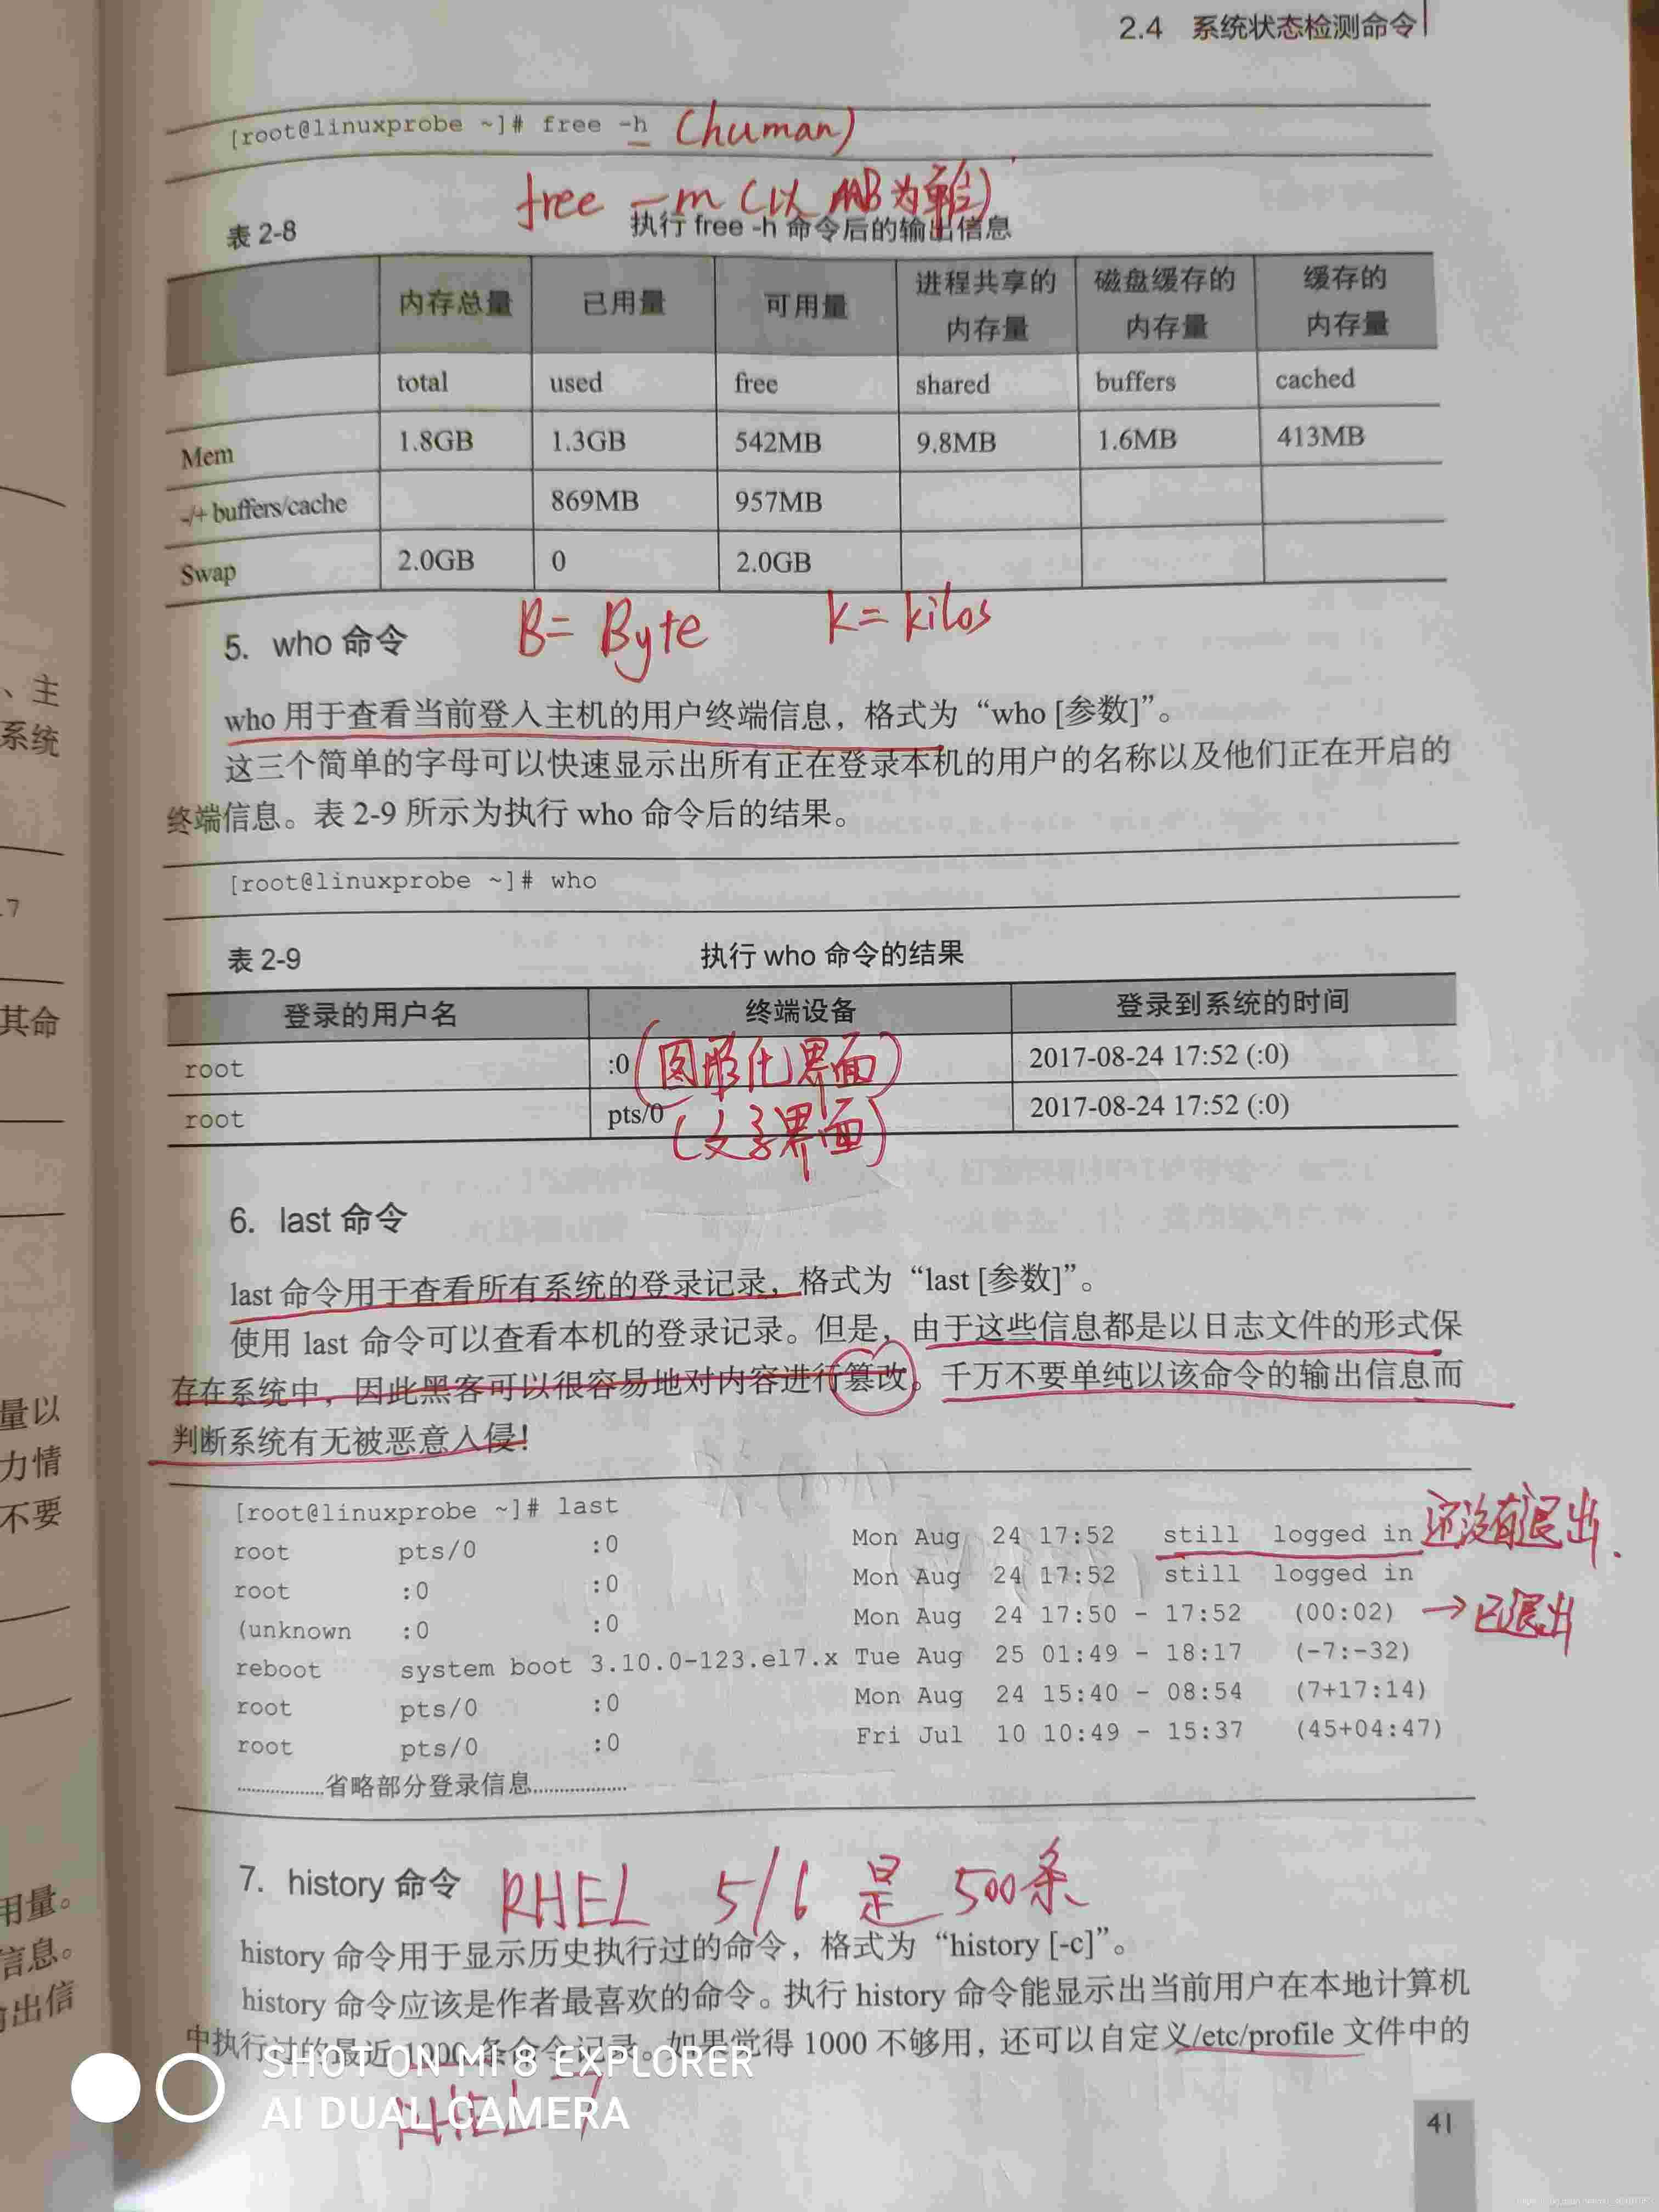 2.4 系统状态检测命令
[root@linuxprobe ~]# free -h (human)
free -m (以MB为单位)
表 2-8 执行 free -h 命令后的输出信息
内存总量 已用量 可用量 进程共享的内存量 磁盘缓存的内存量 缓存的内存量
total used free shared buffers cached
Mem 1.8GB 1.3GB 542MB 9.8MB 1.6MB 413MB
-/+ buffers/cache 869MB 957MB
Swap 2.0GB 0 2.0GB
B= Byte k= kilos
5. who 命令
who 用于查看当前登入主机的用户终端信息，格式为“who [参数]”。
这三个简单的字母可以快速显示出所有正在登录本机的用户的名称以及他们正在开启的
终端信息。表 2-9 所示为执行 who 命令后的结果。
[root@linuxprobe ~]# who
表 2-9 执行 who 命令的结果
登录的用户名 终端设备 登录到系统的时间
root :0 (图形化界面) 2017-08-24 17:52 (:0)
root pts/0 (文字界面) 2017-08-24 17:52 (:0)
6. last 命令
last 命令用于查看所有系统的登录记录，格式为“last [参数]”。
使用 last 命令可以查看本机的登录记录。但是，由于这些信息都是以日志文件的形式保
存在系统中，因此黑客可以很容易地对内容进行篡改。千万不要单纯以该命令的输出信息而
判断系统有无被恶意入侵！
[root@linuxprobe ~]# last
root pts/0 :0 Mon Aug 24 17:52 still logged in 还没有退出.
root :0 :0 Mon Aug 24 17:52 still logged in
(unknown :0 :0 Mon Aug 24 17:50 - 17:52 (00:02) →已退出
reboot system boot 3.10.0-123.el7.x Tue Aug 25 01:49 - 18:17 (-7:-32)
root pts/0 :0 Mon Aug 24 15:40 - 08:54 (7+17:14)
root pts/0 :0 Fri Jul 10 10:49 - 15:37 (45+04:47)
..................省略部分登录信息..................
7. history 命令 RHEL 5/6 是 500条
history 命令用于显示历史执行过的命令，格式为“history [-c]”。
history 命令应该是作者最喜欢的命令。执行 history 命令能显示出当前用户在本地计算机
中执行过的最近 1000 条命令记录。如果觉得 1000 不够用，还可以自定义/etc/profile 文件中的
RHEL 7
SHOT ON MI 8 EXPLORER
AI DUAL CAMERA
41
、主
系统
.7
其命
量以
力情
不要
用量。
信息。
出信